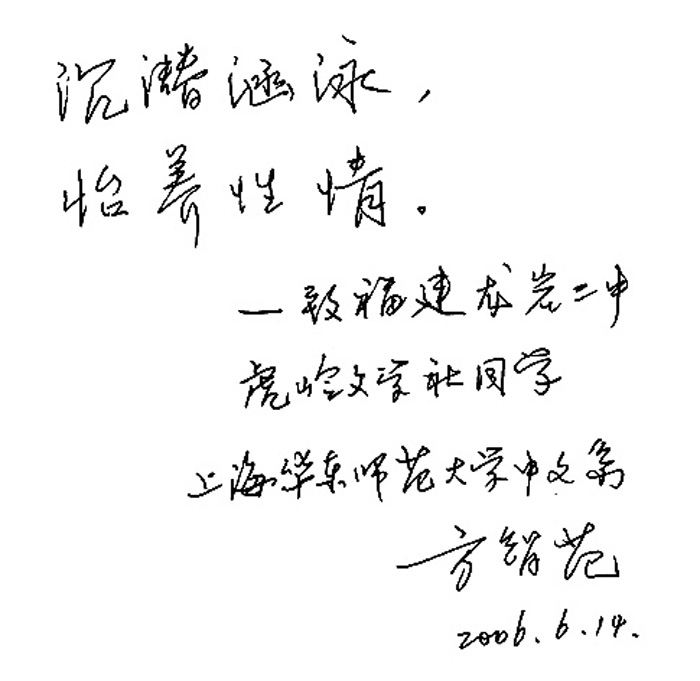 沉潜涵泳，
怡养性情。
—致福建龙岩二中
虎岭文学社同学
上海华东师范大学中文系
—方智范
2006.6.14.